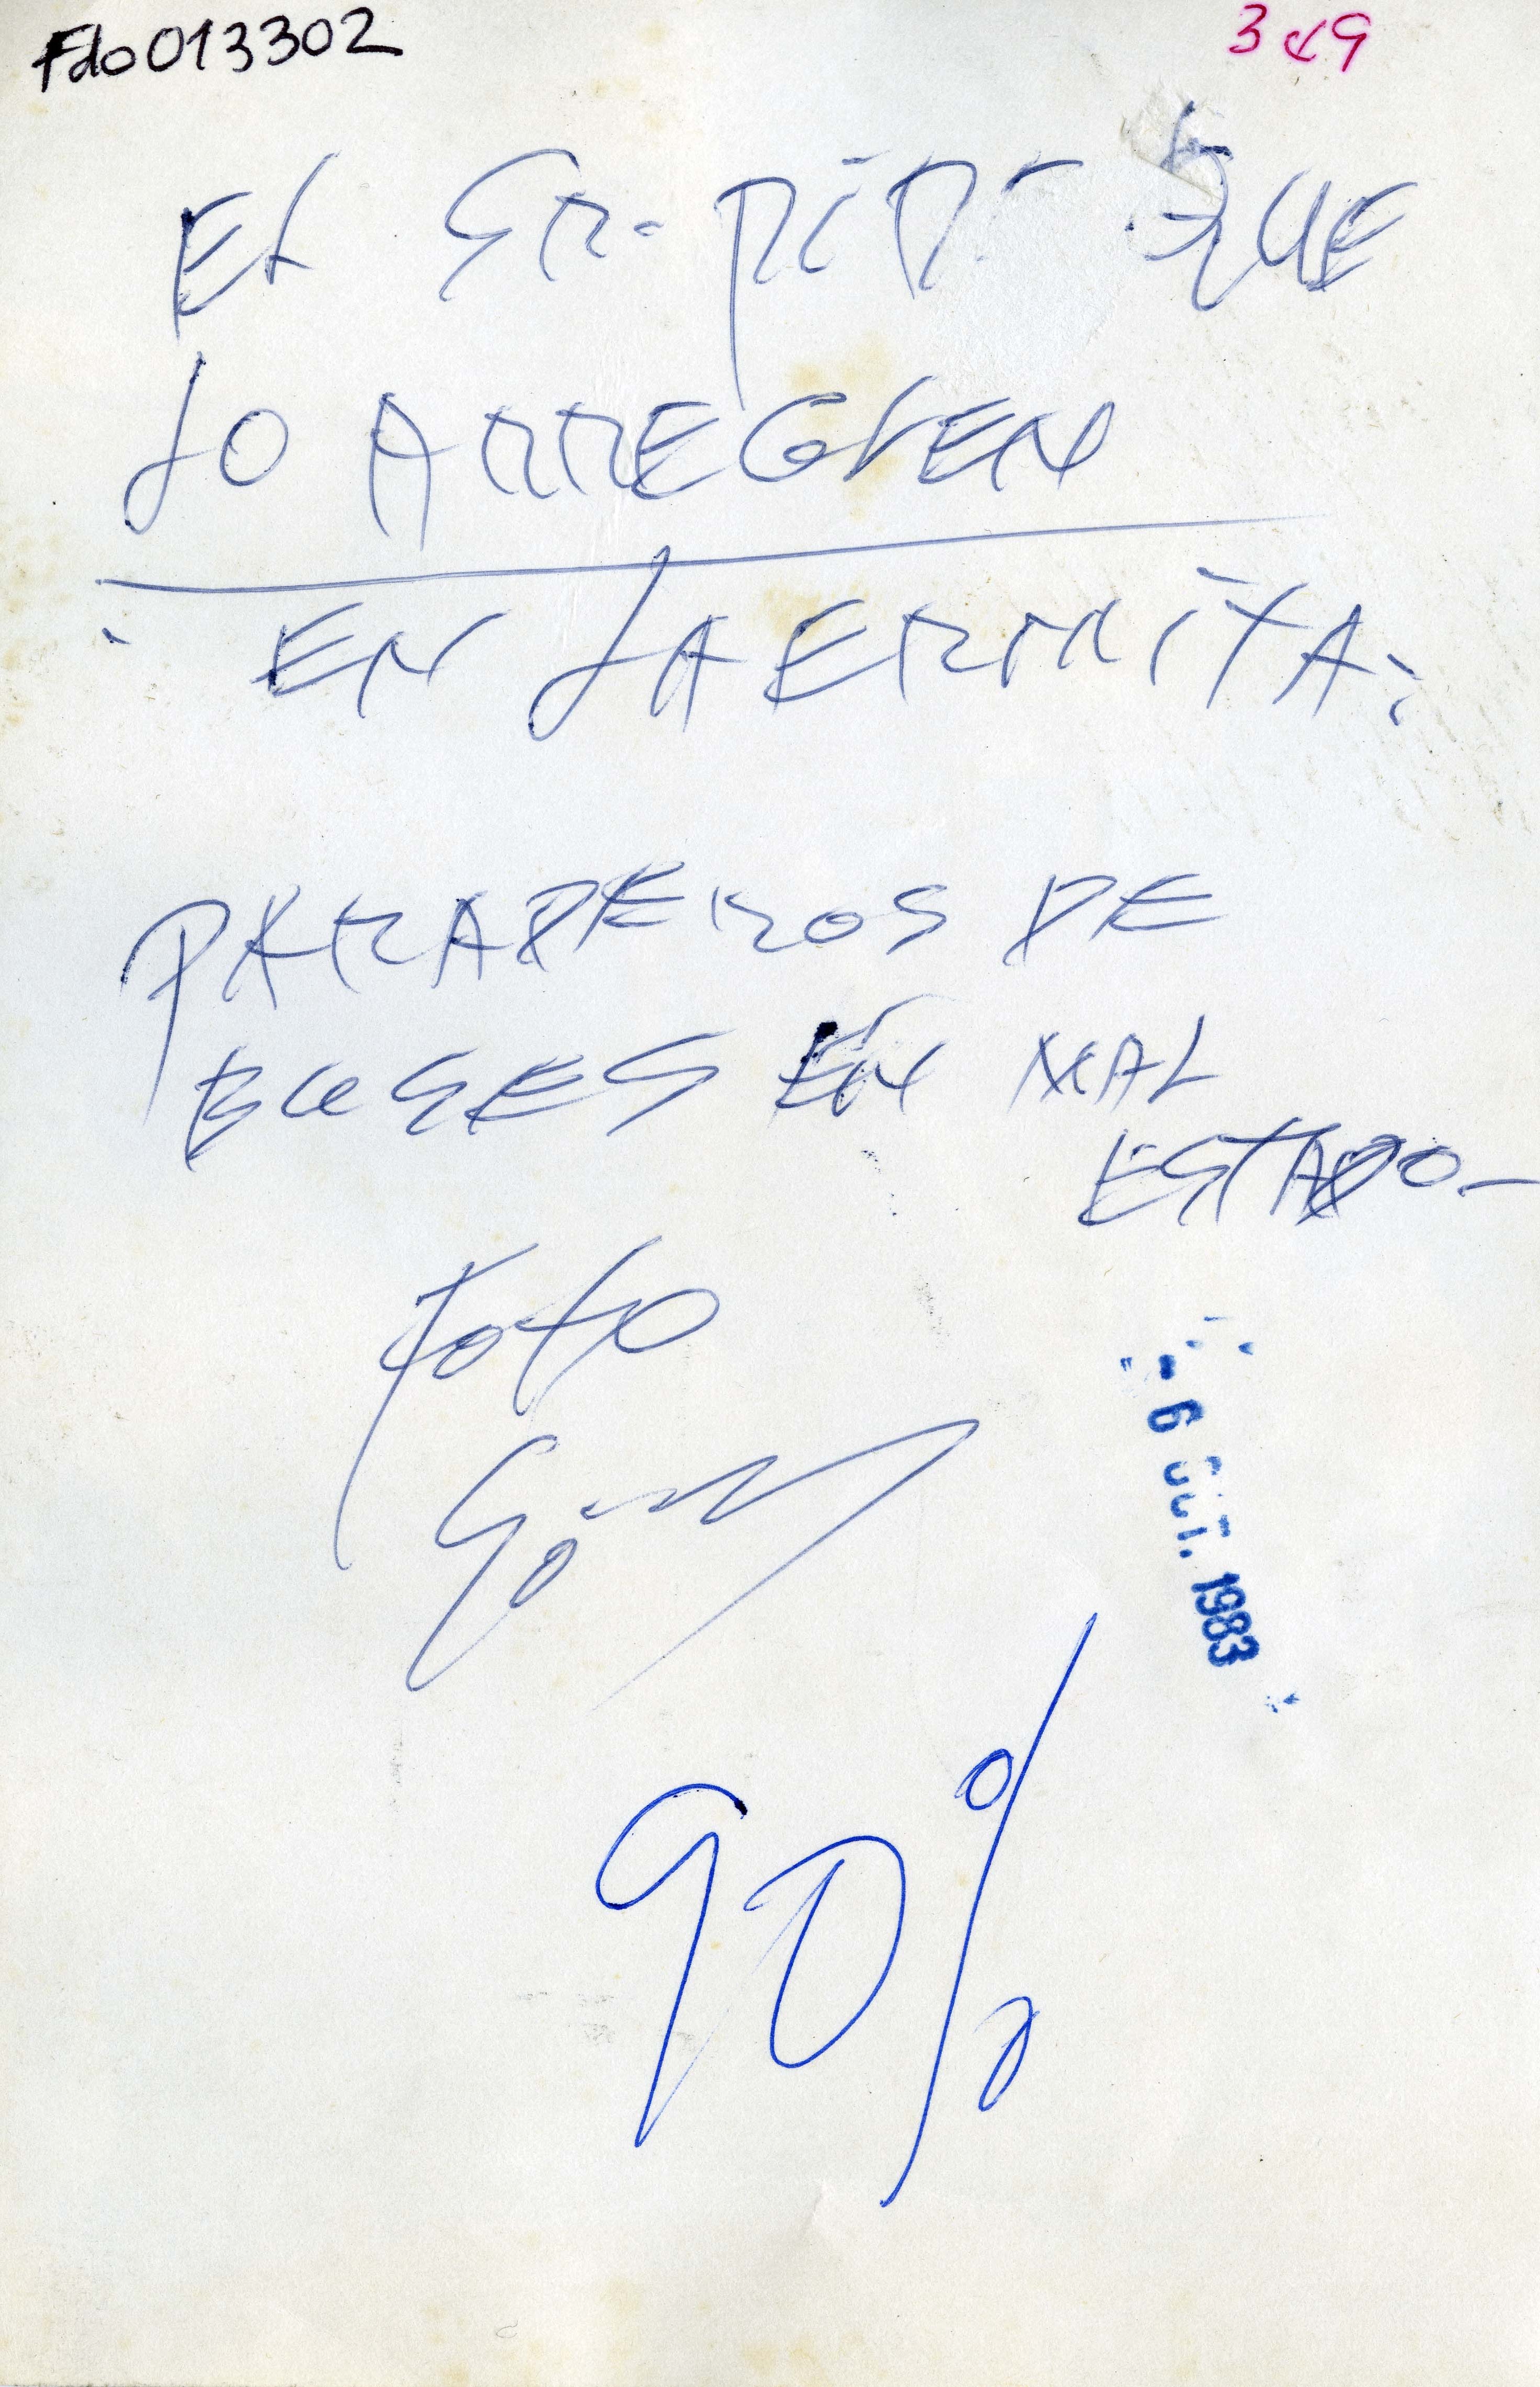 Fdo013302
3x9
EL SR. PIDE QUE
LO ARREGLEN
EN LA ERMITA:
PARADEROS DE
BUSES EN MAL
ESTADO-
Foto
- 6 OCT. 1983
90%